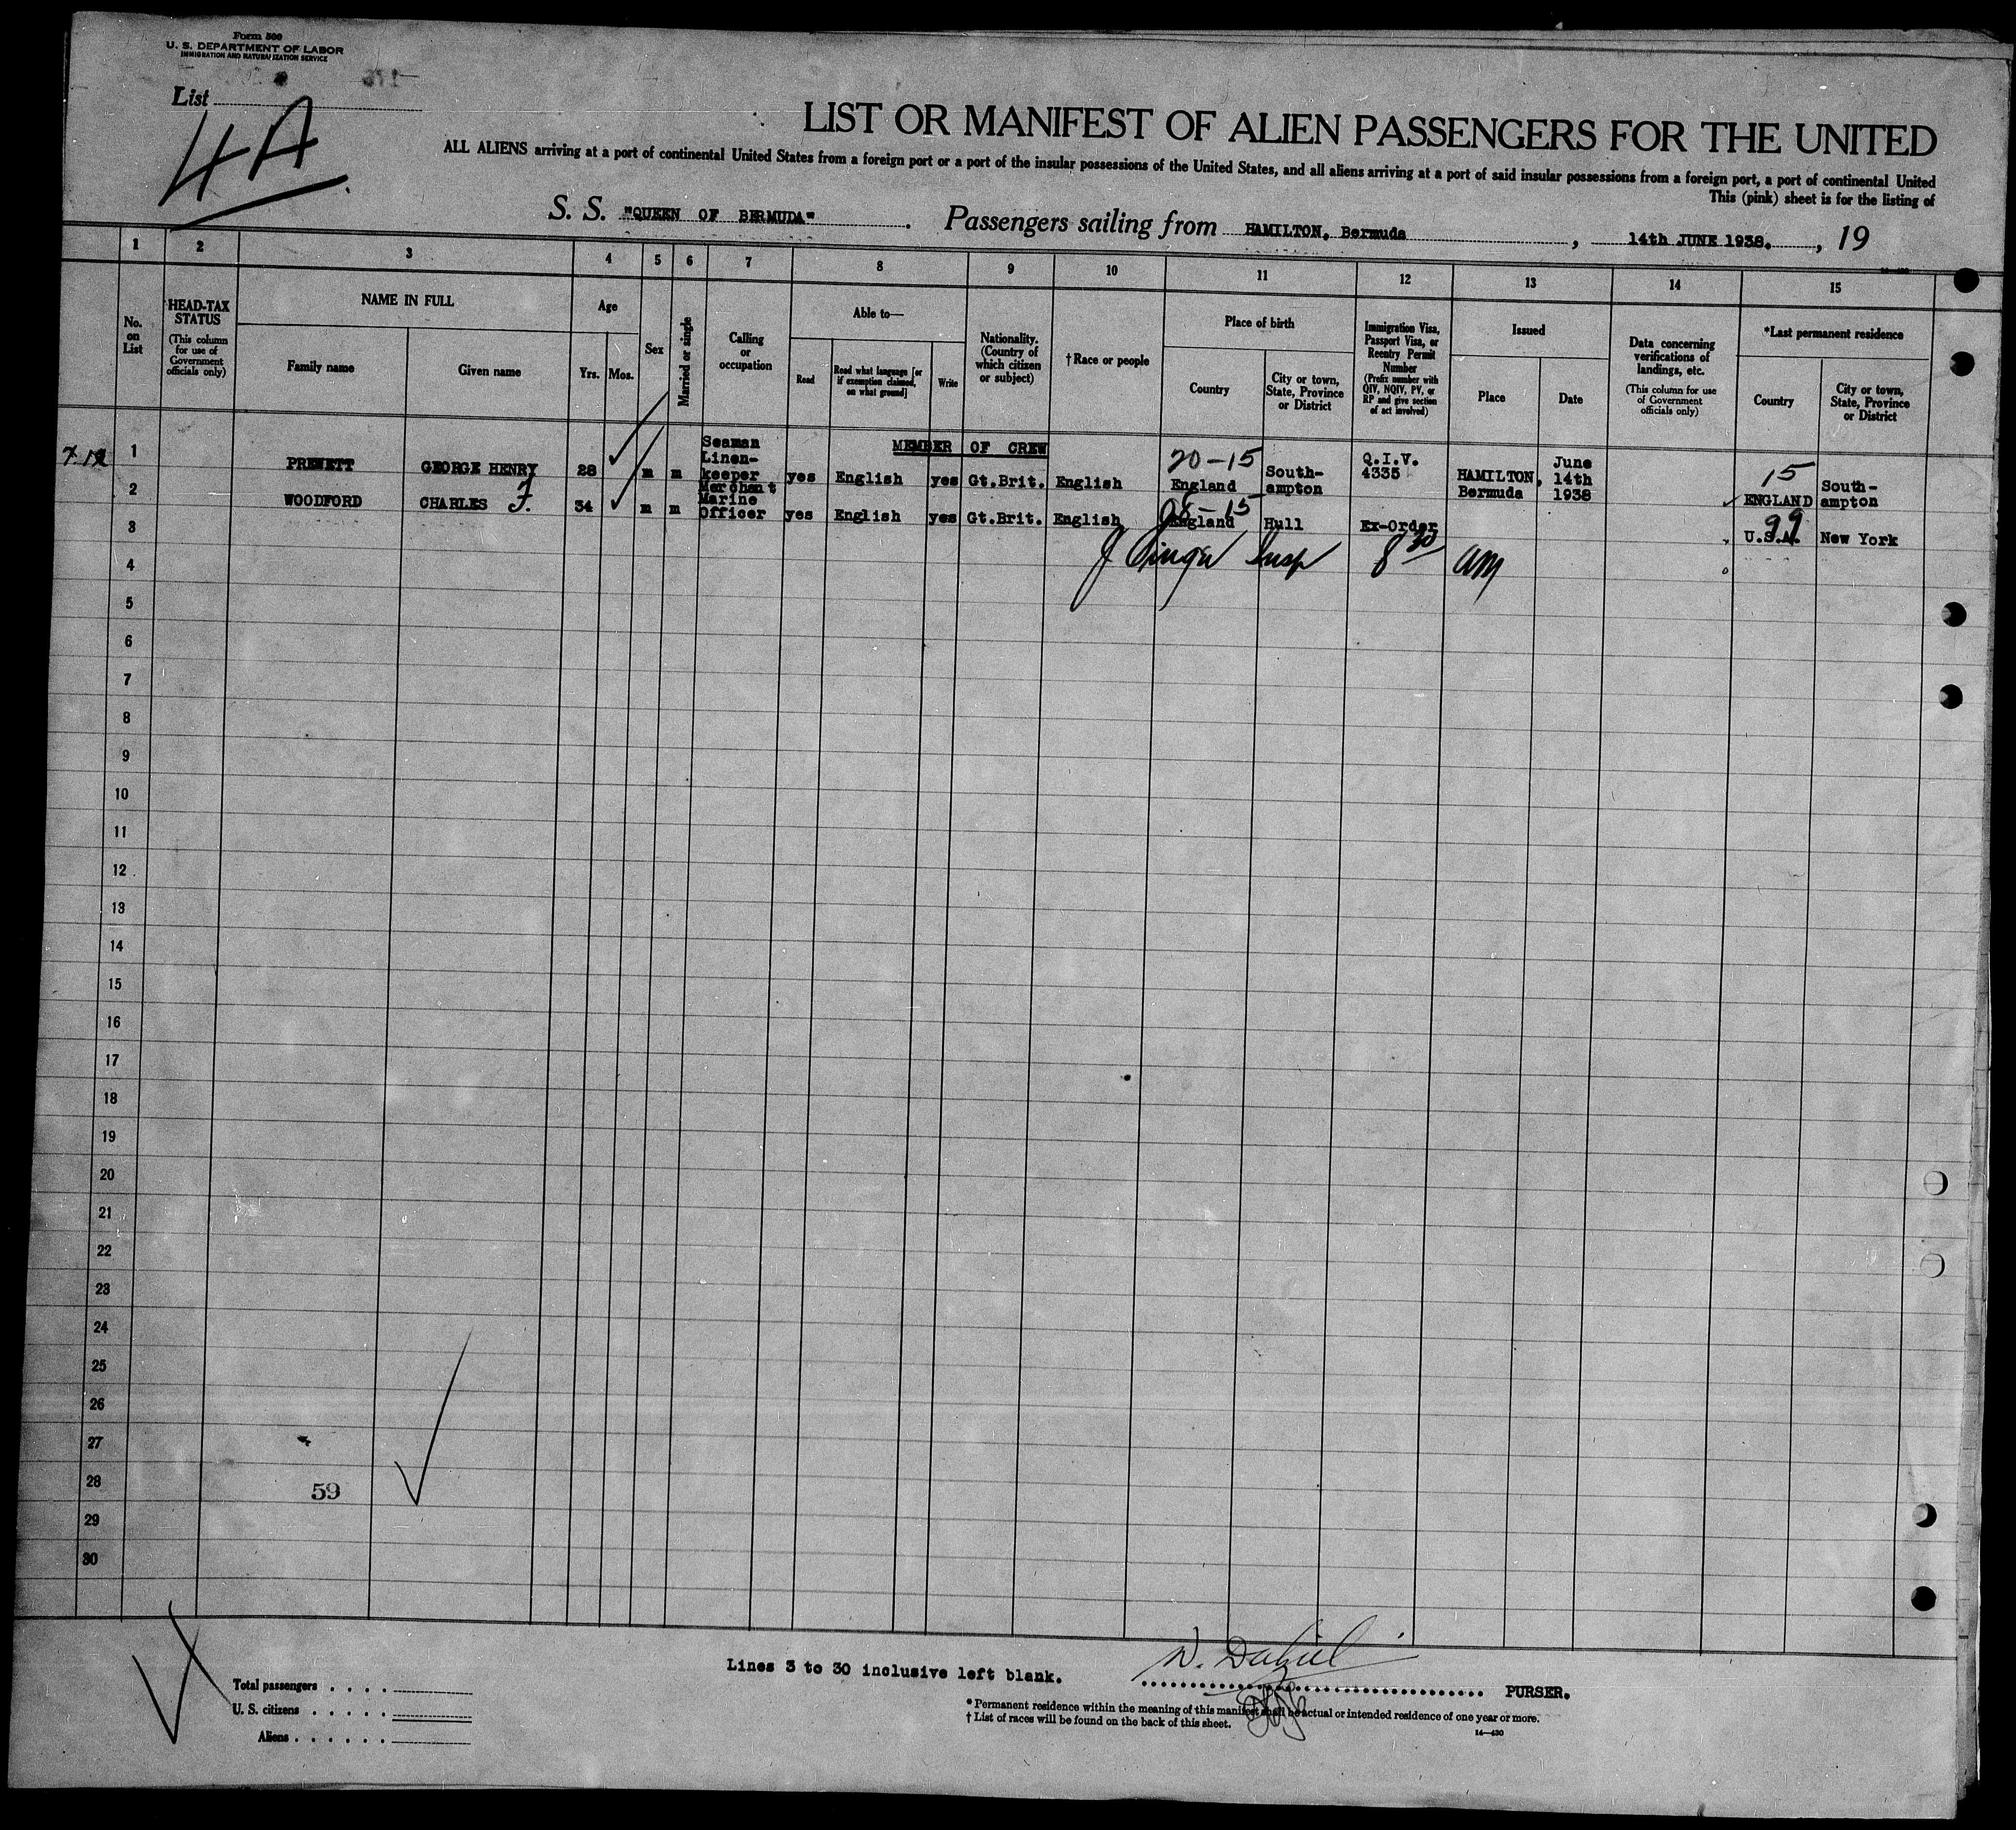 Form 500
U. S. DEPARTMENT OF LABOR
IMMIGRATION AND NATURALIZATION SERVICE
List
4A
LIST OR MANIFEST OF ALIEN PASSENGERS FOR THE UNITED
ALL ALIENS arriving at a port of continental United States from a foreign port or a port of the insular possessions of the United States, and all aliens arriving at a port of said insular possessions from a foreign port, a port of continental United
This (pink) sheet is for the listing of
S. S. "QUEEN OF BERMUDA". Passengers sailing from HAMILTON, Bermuda, 14th JUNE 1938., 19
1 2 3 4 5 6 7 8 9 10 11 12 13 14 15
No. on List
HEAD-TAX STATUS
(This column for use of Government officials only)
NAME IN FULL
Family name
Given name
Age
Yrs. Mos.
Sex
Married or single
Calling or occupation
Able to—
Read
Read what language [or if exemption claimed, on what ground]
Write
Nationality. (Country of which citizen or subject)
†Race or people
Place of birth
Country
City or town, State, Province or District
Immigration Visa, Passport Visa, or Reentry Permit Number
(Prefix number with QIV, NQIV, PV, or RP and give section of act involved)
Issued
Place
Date
Data concerning verifications of landings, etc.
(This column for use of Government officials only)
*Last permanent residence
Country
City or town, State, Province or District
MEMBER OF CREW
1 PREWETT GEORGE HENRY 28 m m Seaman Linen-keeper yes English yes Gt.Brit. English 20-15 England South-ampton Q.I.V. 4335 HAMILTON, Bermuda June 14th 1938 15 ENGLAND South-ampton
2 WOODFORD CHARLES F. 34 m m Merchant Marine Officer yes English yes Gt.Brit. English 15 England Hull Ex-Order 99 U.S.A. New York
3
Insp 8 30 am
4
5
6
7
8
9
10
11
12
13
14
15
16
17
18
19
20
21
22
23
24
25
26
27
28
59
29
30
Lines 3 to 30 inclusive left blank.
PURSER.
Total passengers
U. S. citizens
Aliens
* Permanent residence within the meaning of this manifest shall be actual or intended residence of one year or more.
† List of races will be found on the back of this sheet.
14—430